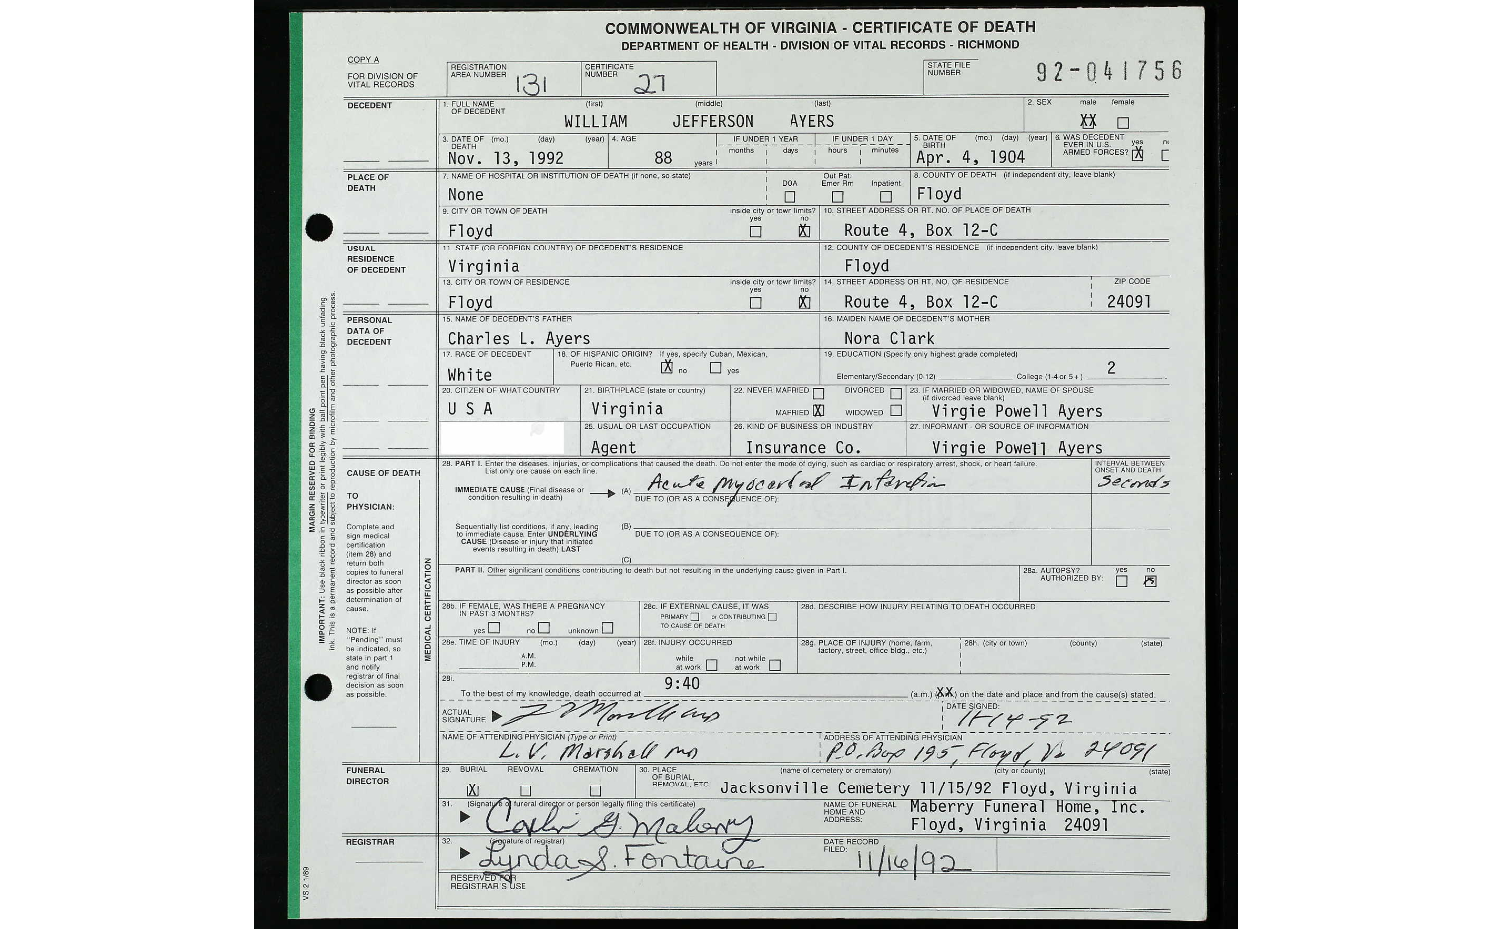 COMMONWEALTH OF VIRGINIA - CERTIFICATE OF DEATH
DEPARTMENT OF HEALTH - DIVISION OF VITAL RECORDS - RICHMOND
COPY A
FOR DIVISION OF VITAL RECORDS
REGISTRATION AREA NUMBER 131
CERTIFICATE NUMBER 27
STATE FILE NUMBER 92-041756
DECEDENT
1. FULL NAME OF DECEDENT (first) (middle) (last)
WILLIAM JEFFERSON AYERS
2. SEX male female
XX
3. DATE OF DEATH (mo.) (day) (year)
Nov. 13, 1992
4. AGE
88 years
IF UNDER 1 YEAR months days
IF UNDER 1 DAY hours minutes
5. DATE OF BIRTH (mo.) (day) (year)
Apr. 4, 1904
6. WAS DECEDENT EVER IN U.S. ARMED FORCES? yes
X
PLACE OF DEATH
7. NAME OF HOSPITAL OR INSTITUTION OF DEATH (if none, so state)
None
DOA Out Pat. Emer Rm Inpatient
8. COUNTY OF DEATH (if independent city, leave blank)
Floyd
9. CITY OR TOWN OF DEATH
Floyd
inside city or town limits? yes no
X
10. STREET ADDRESS OR RT. NO. OF PLACE OF DEATH
Route 4, Box 12-C
USUAL RESIDENCE OF DECEDENT
11. STATE (OR FOREIGN COUNTRY) OF DECEDENT'S RESIDENCE
Virginia
12. COUNTY OF DECEDENT'S RESIDENCE (if independent city, leave blank)
Floyd
13. CITY OR TOWN OF RESIDENCE
Floyd
inside city or town limits? yes no
X
14. STREET ADDRESS OR RT. NO. OF RESIDENCE
Route 4, Box 12-C
ZIP CODE
24091
PERSONAL DATA OF DECEDENT
15. NAME OF DECEDENT'S FATHER
Charles L. Ayers
16. MAIDEN NAME OF DECEDENT'S MOTHER
Nora Clark
17. RACE OF DECEDENT
White
18. OF HISPANIC ORIGIN? If yes, specify Cuban, Mexican, Puerto Rican, etc.
X no yes
19. EDUCATION (Specify only highest grade completed)
Elementary/Secondary (0-12) College (1-4 or 5+) 2
20. CITIZEN OF WHAT COUNTRY
U S A
21. BIRTHPLACE (state or country)
Virginia
22. NEVER MARRIED DIVORCED
MARRIED X WIDOWED
23. IF MARRIED OR WIDOWED, NAME OF SPOUSE (if divorced leave blank)
Virgie Powell Ayers
25. USUAL OR LAST OCCUPATION
Agent
26. KIND OF BUSINESS OR INDUSTRY
Insurance Co.
27. INFORMANT - OR SOURCE OF INFORMATION
Virgie Powell Ayers
CAUSE OF DEATH
TO PHYSICIAN:
Complete and
sign medical
certification
(item 28) and
return both
copies to funeral
director as soon
as possible after
determination of
cause.
NOTE: If
"Pending" must
be indicated, so
state in part 1
and notify
registrar of final
decision as soon
as possible.
MEDICAL CERTIFICATION
28. PART I. Enter the diseases, injuries, or complications that caused the death. Do not enter the mode of dying, such as cardiac or respiratory arrest, shock, or heart failure.
List only one cause on each line.
INTERVAL BETWEEN ONSET AND DEATH
IMMEDIATE CAUSE (Final disease or condition resulting in death) (A) Acute Myocardial
Seconds
DUE TO (OR AS A CONSEQUENCE OF):
Sequentially list conditions, if any, leading to immediate cause. Enter UNDERLYING CAUSE (Disease or injury that initiated events resulting in death) LAST
(B)
DUE TO (OR AS A CONSEQUENCE OF):
(C)
PART II. Other significant conditions contributing to death but not resulting in the underlying cause given in Part I.
28a. AUTOPSY? AUTHORIZED BY: yes no
28b. IF FEMALE, WAS THERE A PREGNANCY IN PAST 3 MONTHS?
yes no unknown
28c. IF EXTERNAL CAUSE, IT WAS
PRIMARY or CONTRIBUTING
TO CAUSE OF DEATH
28d. DESCRIBE HOW INJURY RELATING TO DEATH OCCURRED
28e. TIME OF INJURY (mo.) (day) (year)
A.M.
P.M.
28f. INJURY OCCURRED
while at work not while at work
28g. PLACE OF INJURY (home, farm, factory, street, office bldg., etc.)
28h. (city or town) (county) (state)
28i.
To the best of my knowledge, death occurred at 9:40 (a.m.) (XX) on the date and place and from the cause(s) stated.
ACTUAL SIGNATURE
DATE SIGNED:
11-14-92
NAME OF ATTENDING PHYSICIAN (Type or Print)
L. V. Marshall MD
ADDRESS OF ATTENDING PHYSICIAN
P.O. Box 195, Floyd, Va 24091
FUNERAL DIRECTOR
29. BURIAL REMOVAL CREMATION
X
30. PLACE OF BURIAL, REMOVAL, ETC. (name of cemetery or crematory) (city or county) (state)
Jacksonville Cemetery 11/15/92 Floyd, Virginia
31. (Signature of funeral director or person legally filing this certificate)
G. Maberry
NAME OF FUNERAL HOME AND ADDRESS:
Maberry Funeral Home, Inc.
Floyd, Virginia 24091
REGISTRAR
32. (signature of registrar)
Lynda S. Fontaine
DATE RECORD FILED:
11/16/92
RESERVED FOR REGISTRAR'S USE
MARGIN RESERVED FOR BINDING
IMPORTANT: Use black ribbon in typewriter or print legibly with ball point pen having black unfading
ink. This is a permanent record and subject to reproduction by microfilm and other photographic process.
VS 2 1/89